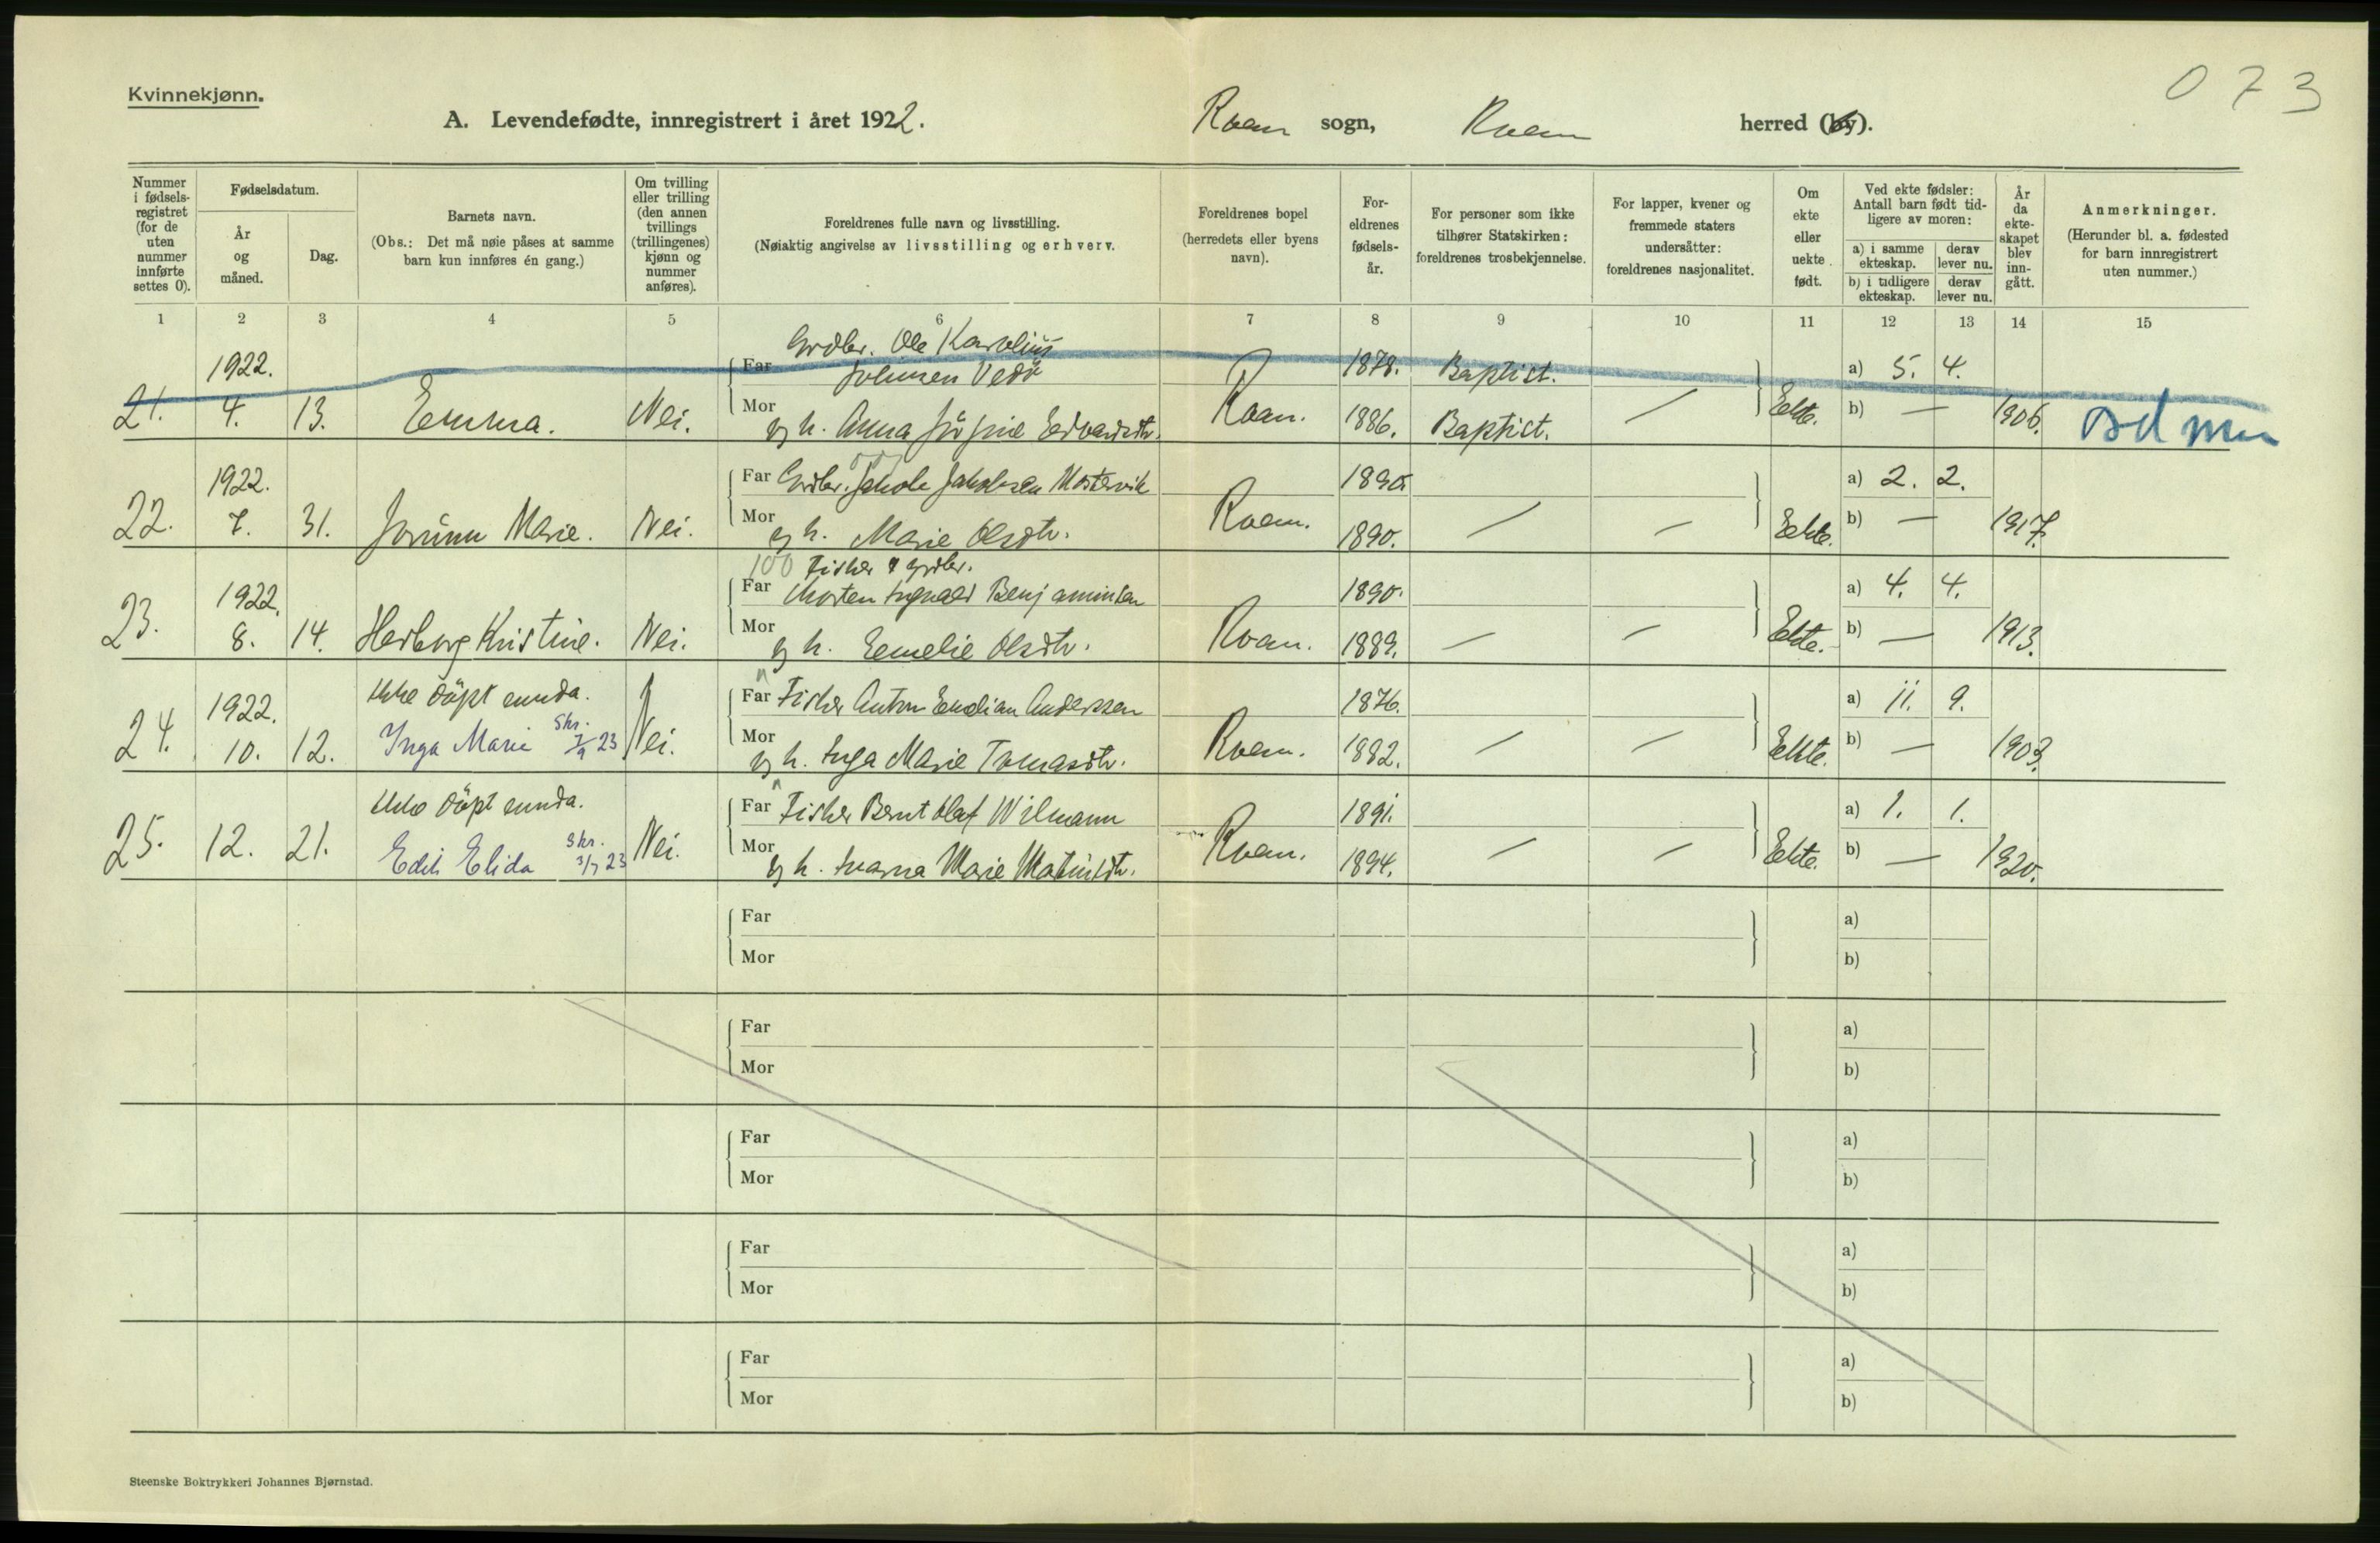 073
Kvinnekjønn.
A. Levendefødte, innregistrert i året 1922. Roan sogn, Roan herred (by).
Nummer i fødsels-registret (for de uten nummer innførte settes 0).
Fødselsdatum.
År og måned.
Dag.
Barnets navn.
(Obs.: Det må nøie påses at samme barn kun innføres én gang.)
Om tvilling eller trilling (den annen tvillings (trillingenes) kjønn og nummer anføres).
Foreldrenes fulle navn og livsstilling.
(Nøiaktig angivelse av livsstilling og erhverv.
Foreldrenes bopel (herredets eller byens navn).
For-eldrenes fødsels-år.
For personer som ikke tilhører Statskirken: foreldrenes trosbekjennelse.
For lapper, kvener og fremmede staters undersåtter: foreldrenes nasjonalitet.
Om ekte eller uekte født.
Ved ekte fødsler: Antall barn født tid-ligere av moren:
a) i samme ekteskap. derav lever nu.
b) i tidligere ekteskap. derav lever nu.
År da ekte-skapet blev inn-gått.
Anmerkninger.
(Herunder bl. a. fødested for barn innregistrert uten nummer.)
1 2 3 4 5 6 7 8 9 10 11 12 13 14 15
Grdbr. Ole Karolius
1922. Far Johnsen 1878. Baptist. a) 5. 4.
21. 4. 13. Emma. Nei. Mor og h. Anna Edvardsdtr. Roan. 1886. Baptist. / Ekte. b) — 1906.
1922. Far Grdbr. Jakob Jakobsen 1890. a) 2. 2.
22. 7. 31. Jorunn Marie. Nei. Mor og h. Marie Olsdtr. Roan. 1890. / / Ekte. b) — 1917.
100 Fisker & grdbr.
1922. Far Morten Benjaminsen 1890. a) 4. 4.
23. 8. 14. Herborg Kristine. Nei. Mor og h. Emelie Olsdtr. Roan. 1889. / / Ekte. b) — 1913.
1922. Ikke döpt enda. Far Fisker Anton Emelian Anderssen 1876. a) 11. 9.
24. 10. 12. Inga Marie Skr. 23 Nei. Mor og h. Inga Marie Tomasdtr. Roan. 1882. / / Ekte. b) — 1903.
Ikke döpt enda. Far Fisker Bernt Olaf Wilmann 1891. a) 1. 1.
25. 12. 21. Edit Elida Skr. 3/7 23 Nei. Mor og h. Marie Roan. 1894. / / Ekte. b) — 1920.
Far a)
Mor b)
Far a)
Mor b)
Far a)
Mor b)
Far a)
Mor b)
Far a)
Mor b)
Steenske Boktrykkeri Johannes Bjørnstad.